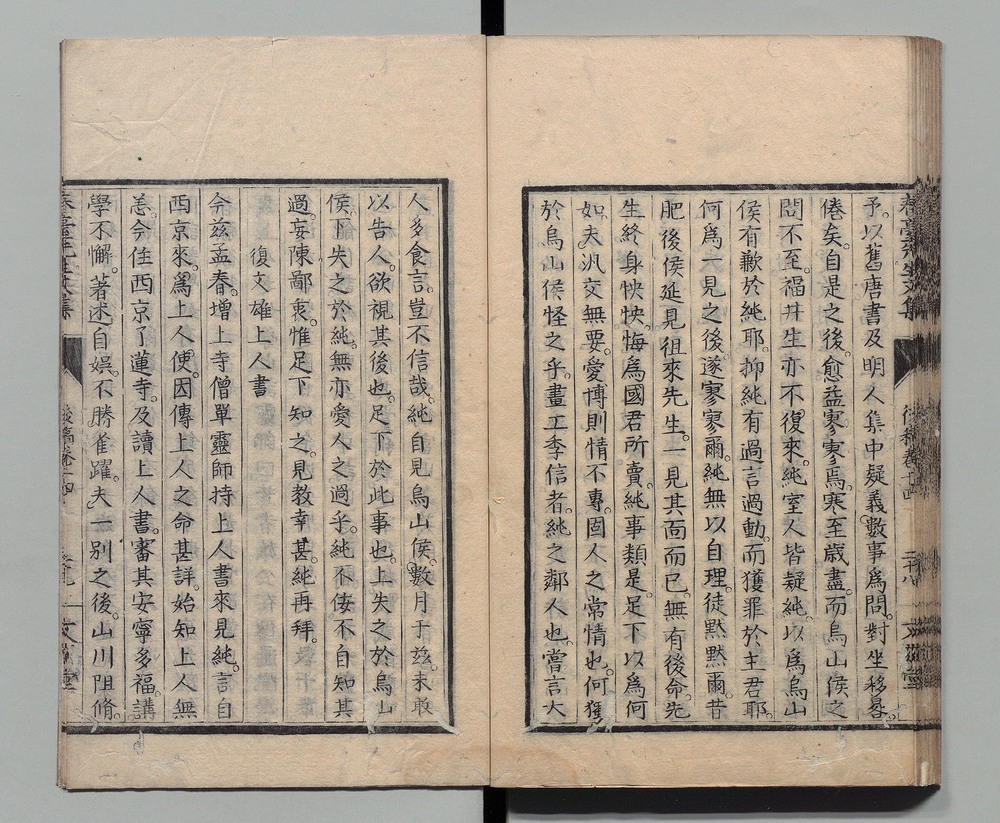 予。以舊唐書及明人集中疑義數事爲問。對坐移晷。
倦矣。自是之後。愈益寥寥焉。寒至歳盡。而烏山侯之
問不至。福井生亦不復來。純室人皆疑純。以爲烏山
侯有歉於純耶。抑純有過言過動。而獲罪於主君耶。
何爲一見之後。遂寥寥爾。純無以自理。徒默默爾。昔
肥後侯延見徂來先生。一見其面而已。無有後命。先
生終身怏怏。悔爲國君所賣。純事類是。足下以爲何
如。夫汎交無要。愛博則情不專。固人之常情也。何獨
於烏山侯怪之乎。畫工季信者。純之鄰人也。嘗言大
人多食言。豈不信哉。純自見烏山侯。數月于茲。未敢
以告人。欲視其後也。足下於此事也。上失之於烏山
侯。下失之於純。無亦愛人之過乎。純不佞。不自知其
過。妄陳鄙衷。惟足下知之。見教幸甚。純再拜。
復文雄上人書
今茲孟春。増上寺僧單靈師持上人書來見純。言自
西京來。爲上人使。因傳上人之命甚詳。始知上人無
恙。今住西京了蓮寺。及讀上人書。審其安寧多福。講
學不懈。著述自娯。不勝雀躍。夫一別之後。山川阻脩。
後稿卷十四